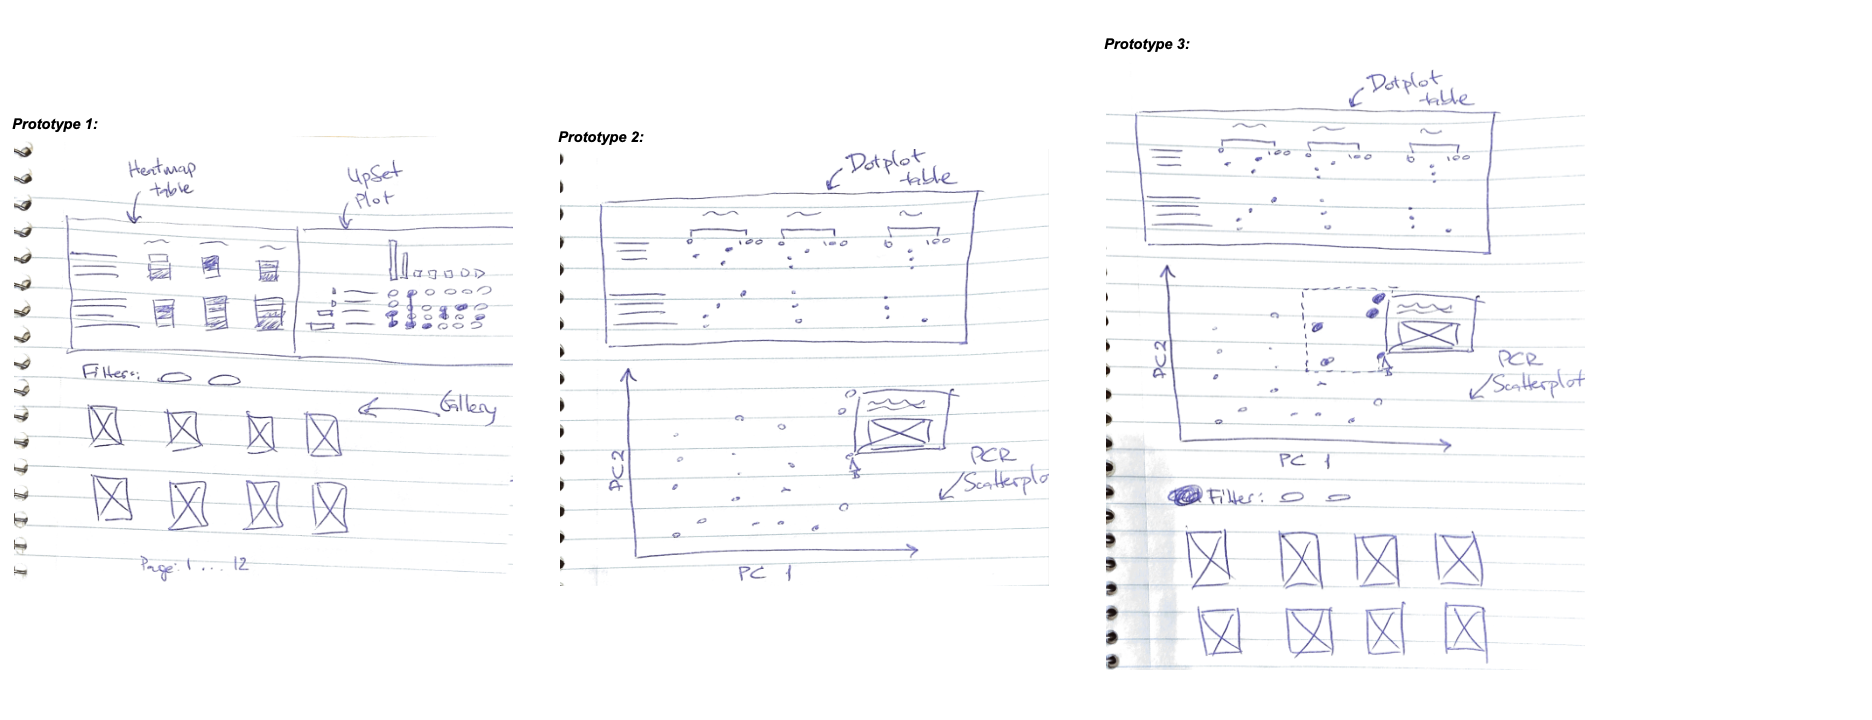 Prototype 1:
Heatmap
table
UpSet
Plot
Filters:
Gallery
Page: 1 ... 12
Prototype 2:
Dotplot
table
0 100 0 100 0 100
PC2
PCR
Scatterplo
PC 1
Prototype 3:
Dotplot
table
0 100 0 100 0 100
PC2
PCR
Scatterplot
PC 1
Filter: